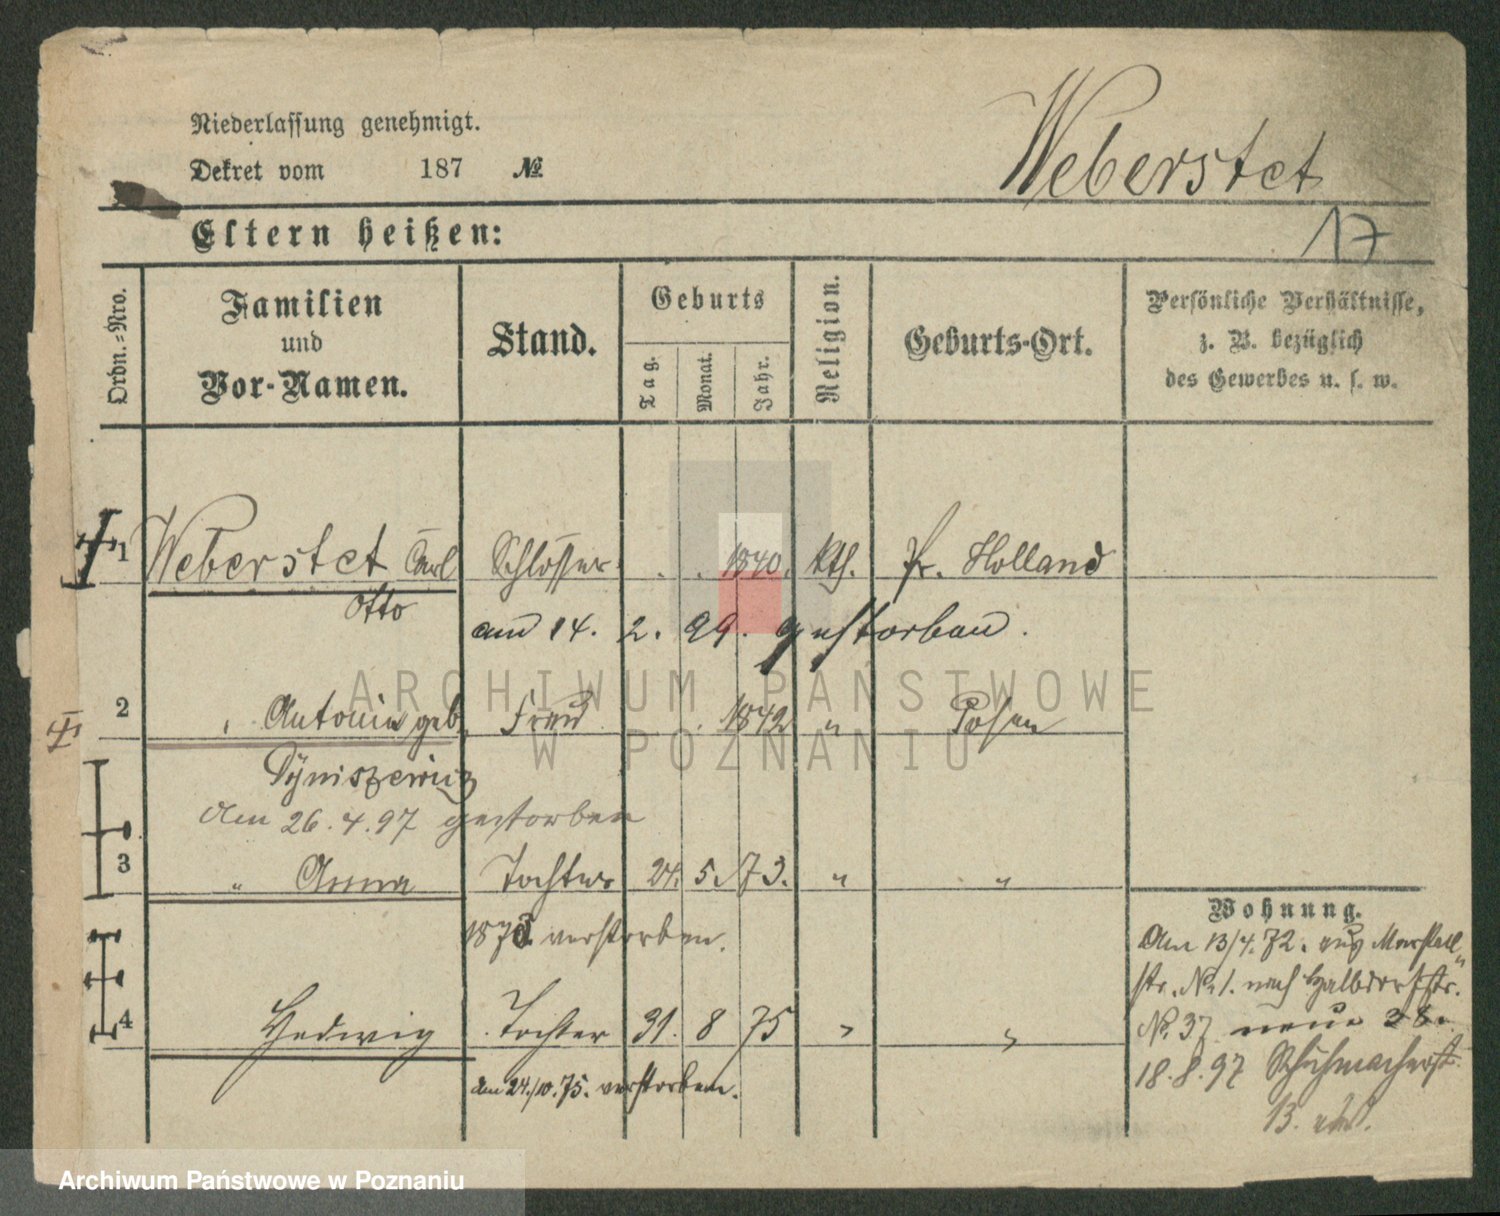 Niederlassung genehmigt.
Dekret vom 187 №
Weberstet
17
Eltern heißen:
Ordn.-Nro.
Familien
und
Vor-Namen.
Stand.
Geburts
Tag.
Monat.
Jahr.
Religion.
Geburts-Ort.
Persönliche Verhältnisse,
z. B. bezüglich
des Gewerbes u. s. w.
1 Weberstet Carl Schlosser 1840. kth. Pr. Holland
Otto
am 14. 2. 99. gestorben.
ARCHIWUM PAŃSTWOWE
W POZNANIU
2 Antonia geb. Frau 1842 " Posen
Dyniszewicz
Am 26.4.97 gestorben
3 " Anna Tochter 24. 5. 73. " "
187 verstorben.
4 Hedwig Tochter 31. 8 75 " "
am 24./10.75. verstorben.
Wohnung.
Am 13/4.72. aus Marstall-
str. No. 1. nach Halbdorfstr.
No. 37 neue 38.
18.8.97 Schuhmacherst.
13.
Archiwum Państwowe w Poznaniu